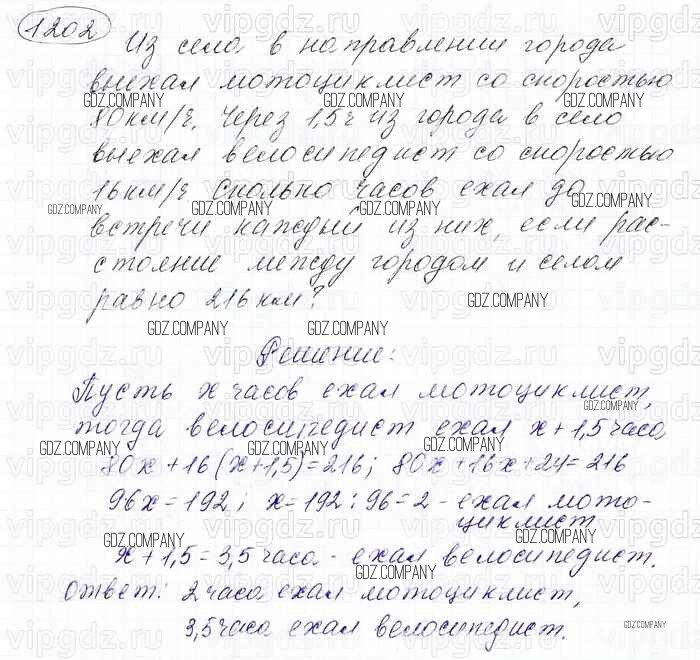 1202
Из села в направлении города
выехал мотоциклист со скоростью
80 км/ч. Через 1,5 ч из города в село
выехал велосипедист со скоростью
16 км/ч. Сколько часов ехал до
встречи каждый из них, если рас-
стояние между городом и селом
равно 216 км?
Решение:
Пусть х часов ехал мотоциклист,
тогда велосипедист ехал х + 1,5 часа
80х + 16(х + 1,5) = 216; 80х + 16х + 24 = 216
96х = 192; х = 192 : 96 = 2 - ехал мото-
циклист
х + 1,5 = 3,5 часа - ехал велосипедист.
Ответ: 2 часа ехал мотоциклист,
3,5 часа ехал велосипедист.
GDZ.COMPANY
vipgdz.ru